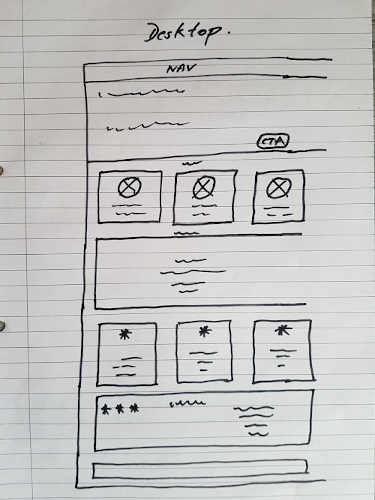 Desktop.
NAV
CTA